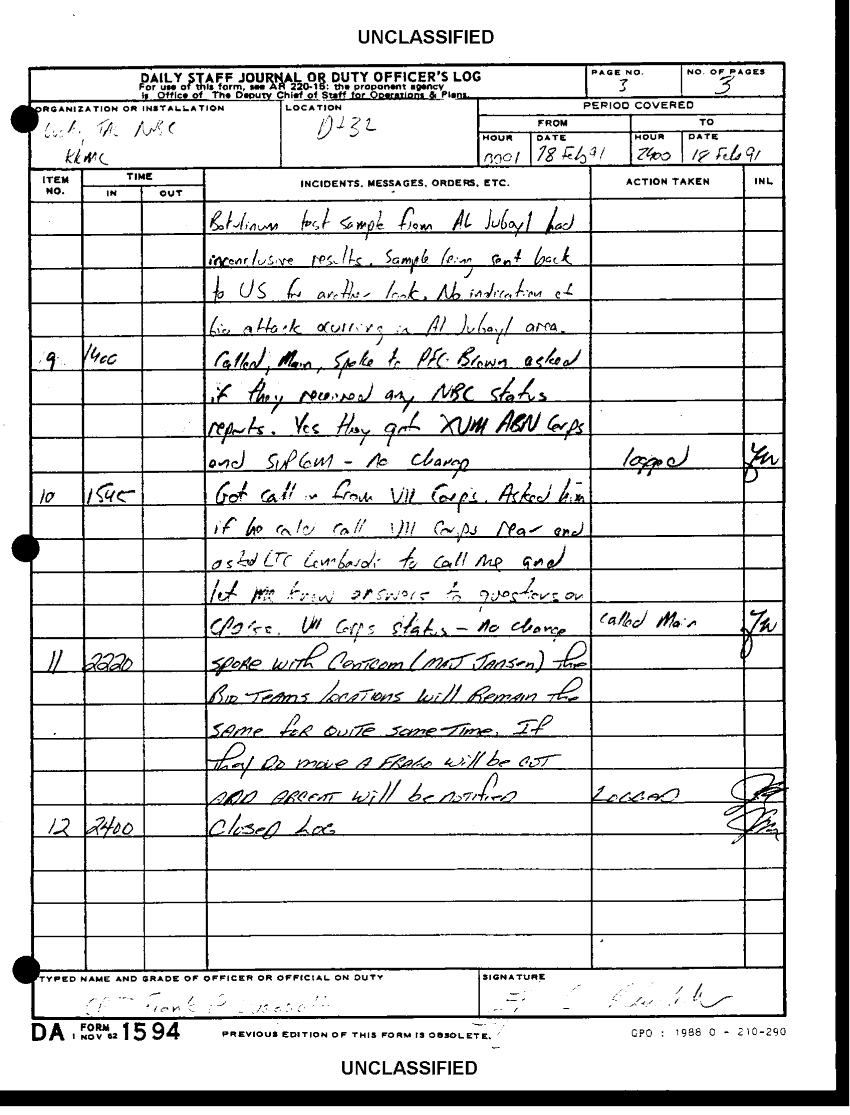 UNCLASSIFIED
DAILY STAFF JOURNAL OR DUTY OFFICER'S LOG
For use of this form, see AR 220-15; the proponent agency
is Office of The Deputy Chief of Staff for Operations & Plans.
PAGE NO.
3
NO. OF PAGES
3
ORGANIZATION OR INSTALLATION
NBC
KKMC
LOCATION
D+32
PERIOD COVERED
FROM
TO
HOUR
DATE
HOUR
DATE
0001
18 Feb 91
2400
18 Feb 91
ITEM NO.
TIME
IN
OUT
INCIDENTS, MESSAGES, ORDERS, ETC.
ACTION TAKEN
INL
Botulinum test sample from AL Jubayl had
inconclusive results. Sample being sent back
to US for another look. No indication of
bio attack occurring in Al Jubayl area.
9 1400 Called, Main, Spoke to PFC Brown asked
if they received any NBC status
reports. Yes they got XVIII ABN Corps
and SUPCOM - no change logged
10 1545 Got call in from VII Corps. Asked him
if he could call VII Corps rear and
asked LTC Lombardi to call me and
let me know answers to questions on
VII Corps status - no change called Main
11 2220 spoke with Centcom (MAJ Jansen) the
Bio Teams locations will Remain the
same for quite some time. If
they Do move A FRAGO will be cut
AND ARCENT will be notified Logged
12 2400 Closed Log
TYPED NAME AND GRADE OF OFFICER OR OFFICIAL ON DUTY
Frank
SIGNATURE
DA FORM 1594
1 NOV 62
PREVIOUS EDITION OF THIS FORM IS OBSOLETE.
GPO : 1988 O - 210-290
UNCLASSIFIED